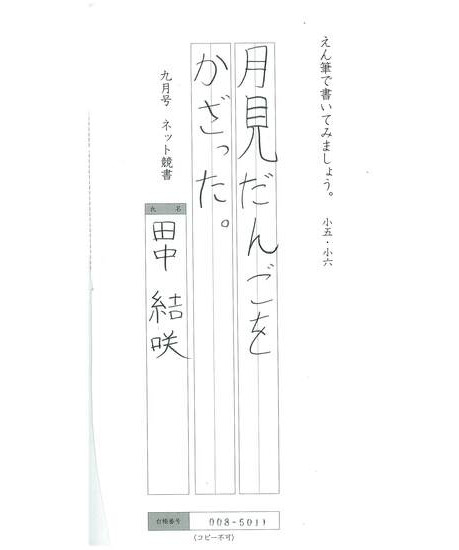 えん筆で書いてみましょう。 小五・小六
月見だんごを
かざった。
九月号 ネット競書
氏名
田中 結咲
台帳番号 008-5011
(コピー不可)